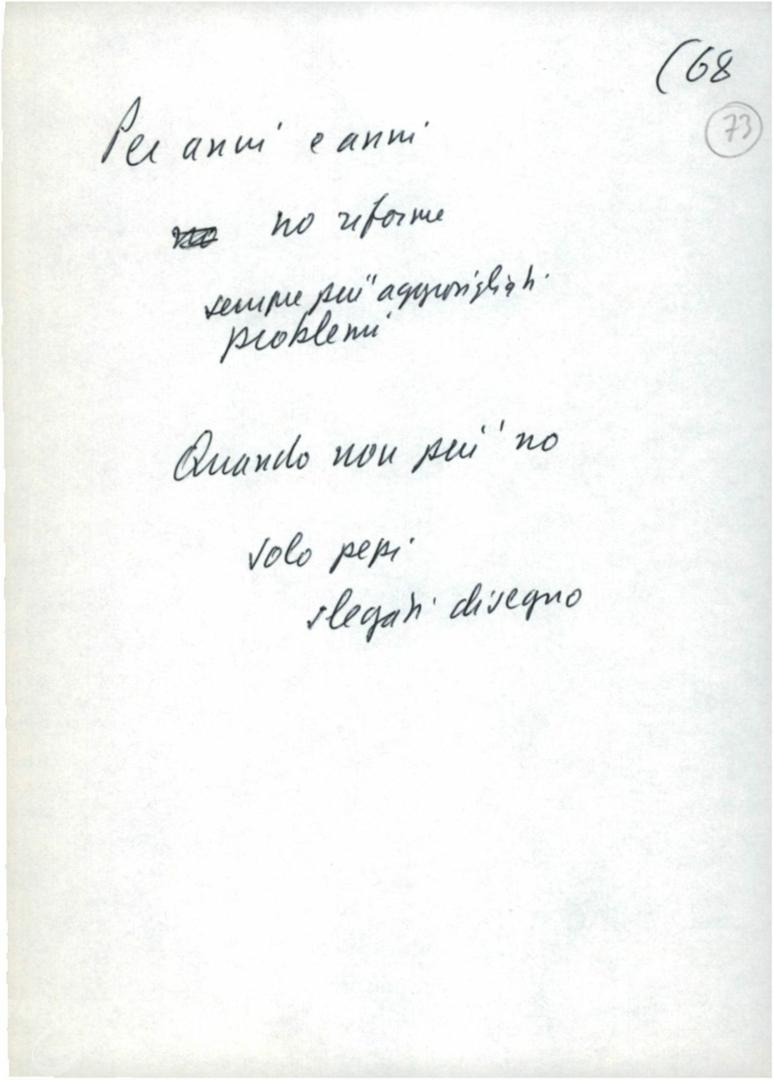 (68
73
Per anni e anni
no riforme
sempre più aggrovigliati
problemi
Quando non più no
solo pezzi
slegati disegno